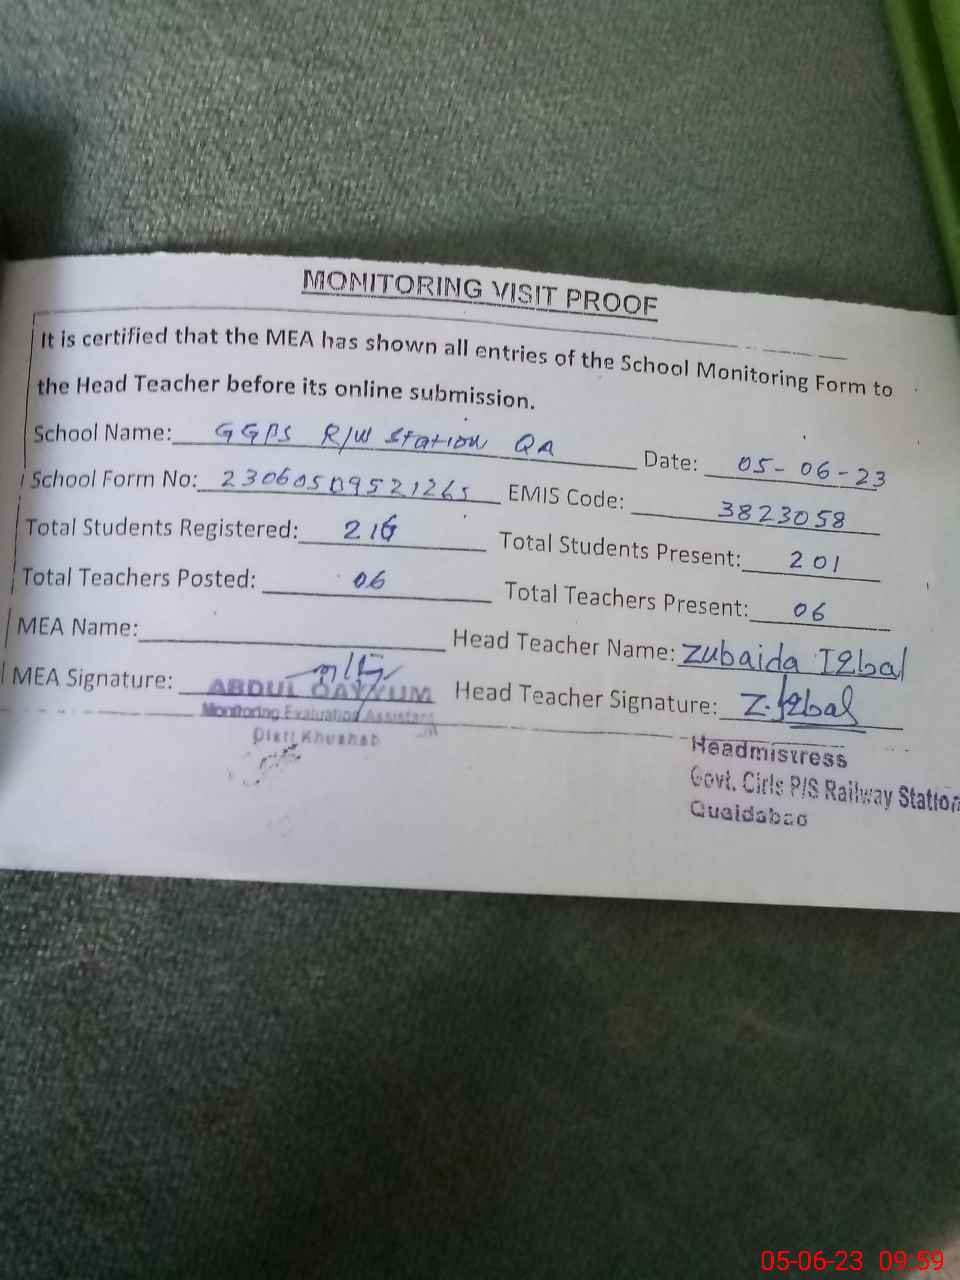 MONITORING VISIT PROOF
It is certified that the MEA has shown all entries of the School Monitoring Form to
the Head Teacher before its online submission.
School Name: GGPS R/W Station QA Date: 05-06-23
School Form No: EMIS Code: 3823058
Total Students Registered: 216 Total Students Present: 201
Total Teachers Posted: 06 Total Teachers Present: 06
MEA Name: Head Teacher Name: Zubaida Iqbal
MEA Signature: Head Teacher Signature: Z. Iqbal
ABDUL QAYYUM
Monitoring Evaluation Assistant
Distt Khushab
Headmistress
Govt. Girls P/S Railway Station
Quaidabad
05-06-23 09:59